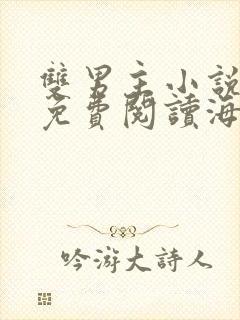 雙男主小說
免費閱讀海
吟游大詩人